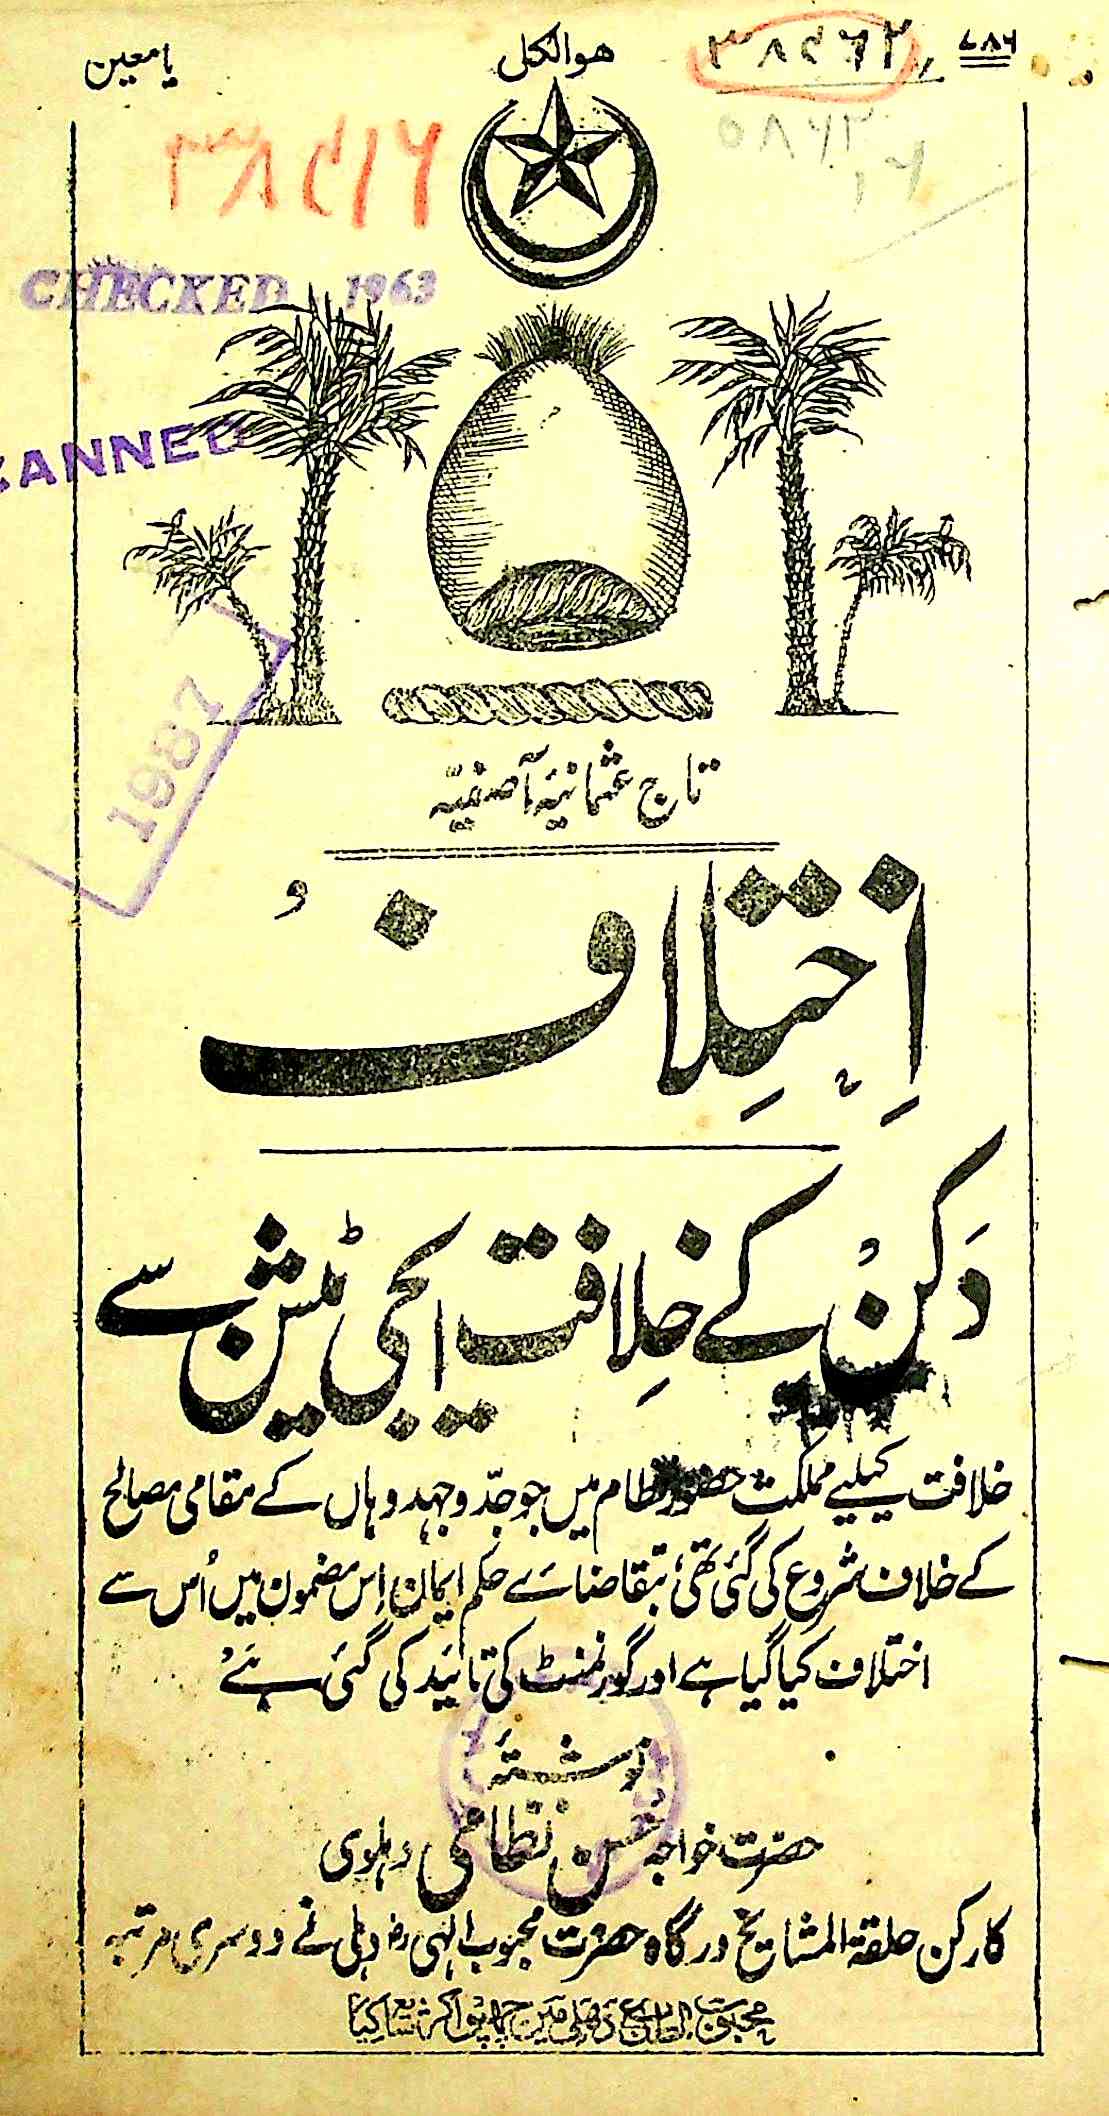 ۷۸۶
۳۸۹۶۲
ھوالکل
یا معین
۳۸۹۱۶
۵۸۶۲
۱۶
CHECKED 1963
ANNED
1987
تاج عثمانیہ آصفیہ
اِختِلافُ
دَکنُ کے خِلافت ایجی ٹیشن سے
خلافت کیلیے مملکت حضور نظام میں جو جدّ و جہد وہاں کے مقامی مصالح
کے خلاف شروع کی گئی تھی؛ بتقاضائے حکم ایمان اِس مضمون میں اُس سے
اختلاف کیا گیا ہے اور گورنمنٹ کی تائید کی گئی ہَے
نوشتۂ
حضرت خواجہ حسن نظامی دہلوی
کارکن حلقۃ المشایخ درگاہ حضرت محبوب الٰہی رضہ دہلی نے دوسری مرتبہ
محبوب المطابع دھلی مین چھپواکر شایع کیا